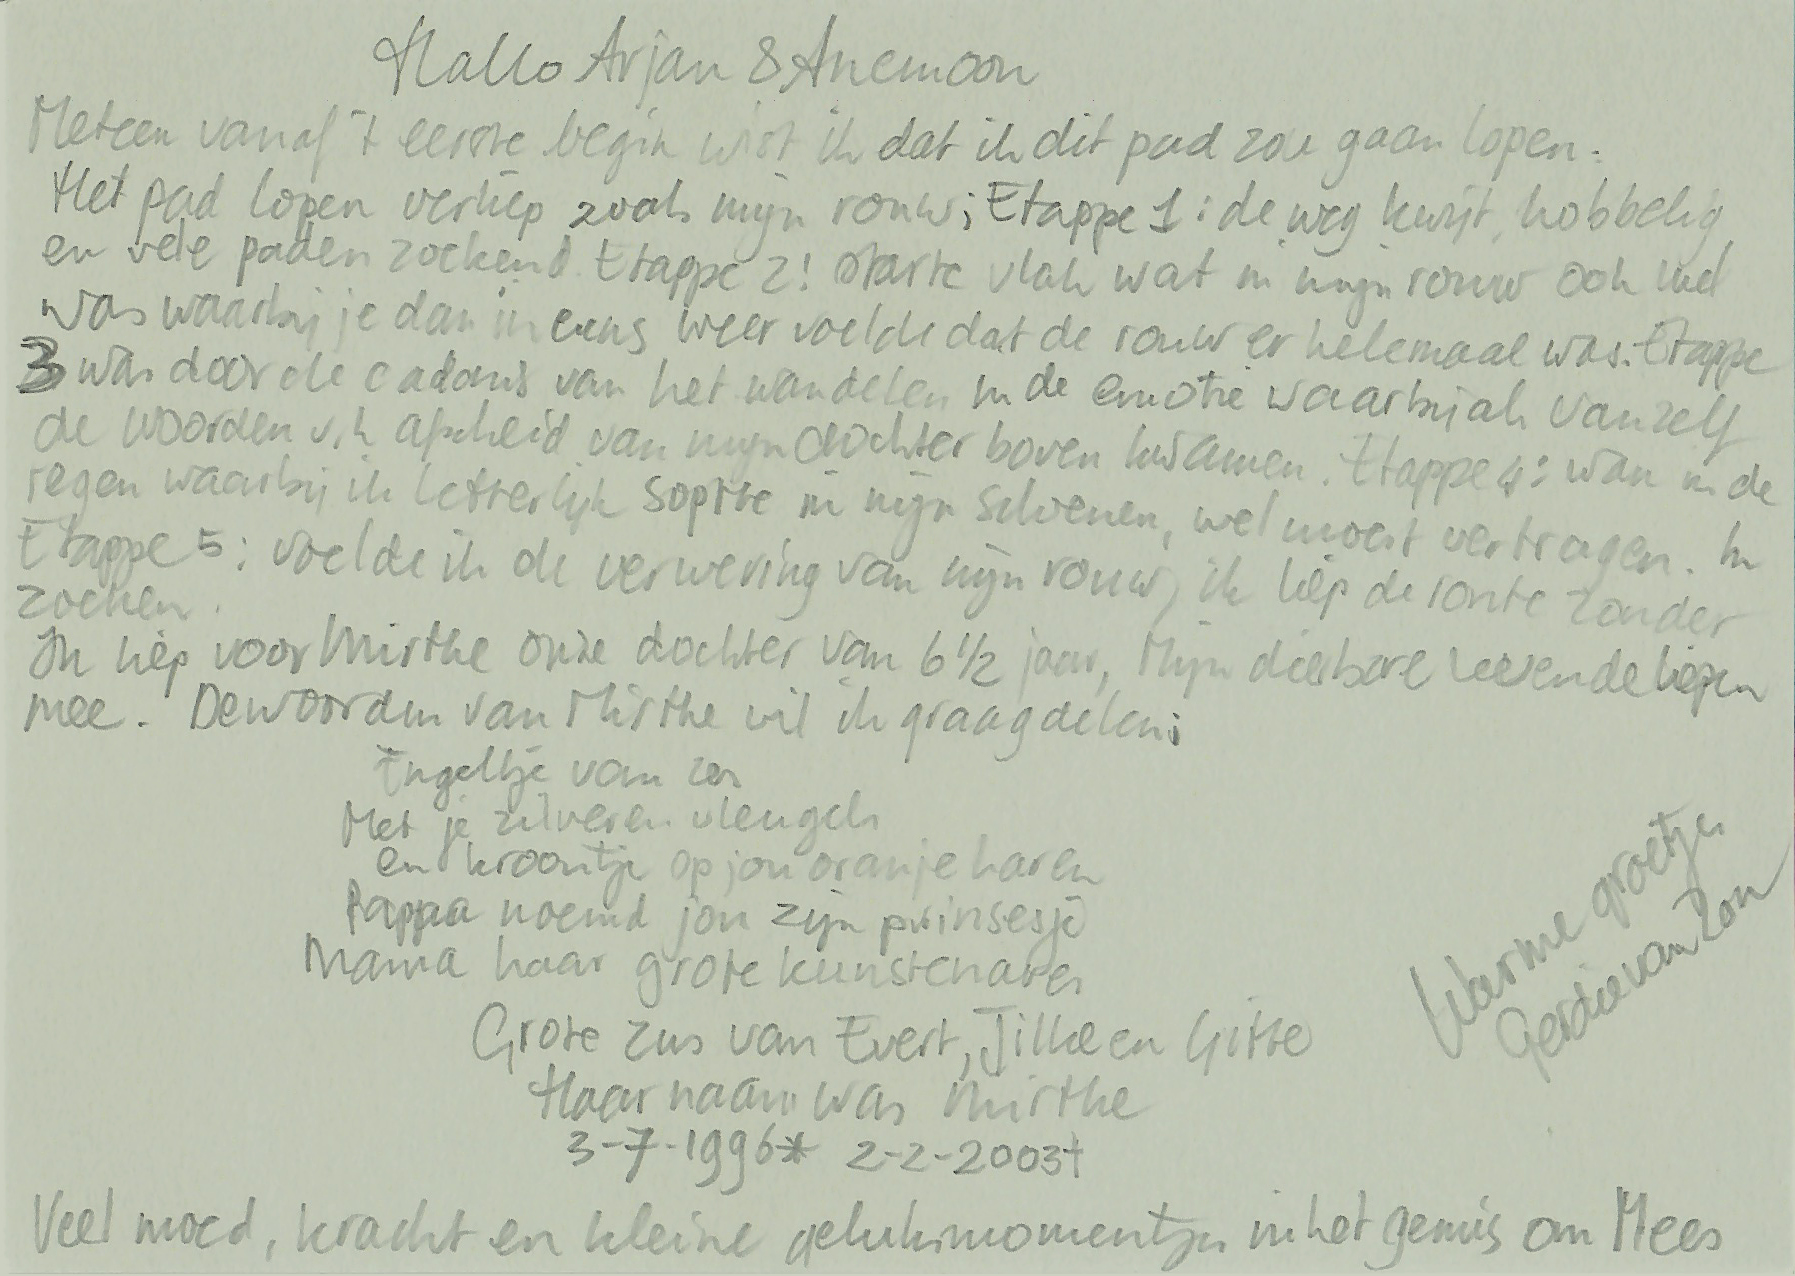 Hallo Arjan & Anemoon
Meteen vanaf 't eerste begin wist ik dat ik dit pad zou gaan lopen.
Het pad lopen verliep zoals mijn rouw; Etappe 1: de weg kwijt, hobbelig,
en vele paden zoekend. Etappe 2! starte vlak wat in mijn rouw ook
was waarbij je dan ineens weer voelde dat de rouw er helemaal was. Etappe
3 was door de cadans van het wandelen in de emotie waarbij als vanzelf
de woorden v.h afscheid van mijn dochter boven kwamen. Etappe 4: was in de
regen waarbij ik letterlijk sopte in mijn schoenen, wel moest vertragen. In
Etappe 5: voelde ik de verwering van mijn rouw, ik liep de route zonder
zoeken.
Ik liep voor Mirthe onze dochter van 6 1/2 jaar, Mijn dierbare levende liepen
mee. De woorden van Mirthe wil ik graag delen;
Engeltje van zon
Met je zilveren vleugels
en kroontje op jou oranje haren
Pappa noemd jou zijn prinsesje
Mama haar grote kunstenares
Grote zus van Evert, Jilke en Gitte
Haar naam was Mirthe
3-7-1996* 2-2-2003†
Warme groetjes
Gerdie van Zon
Veel moed, kracht en kleine geluksmomentjes in het gemis om Mees